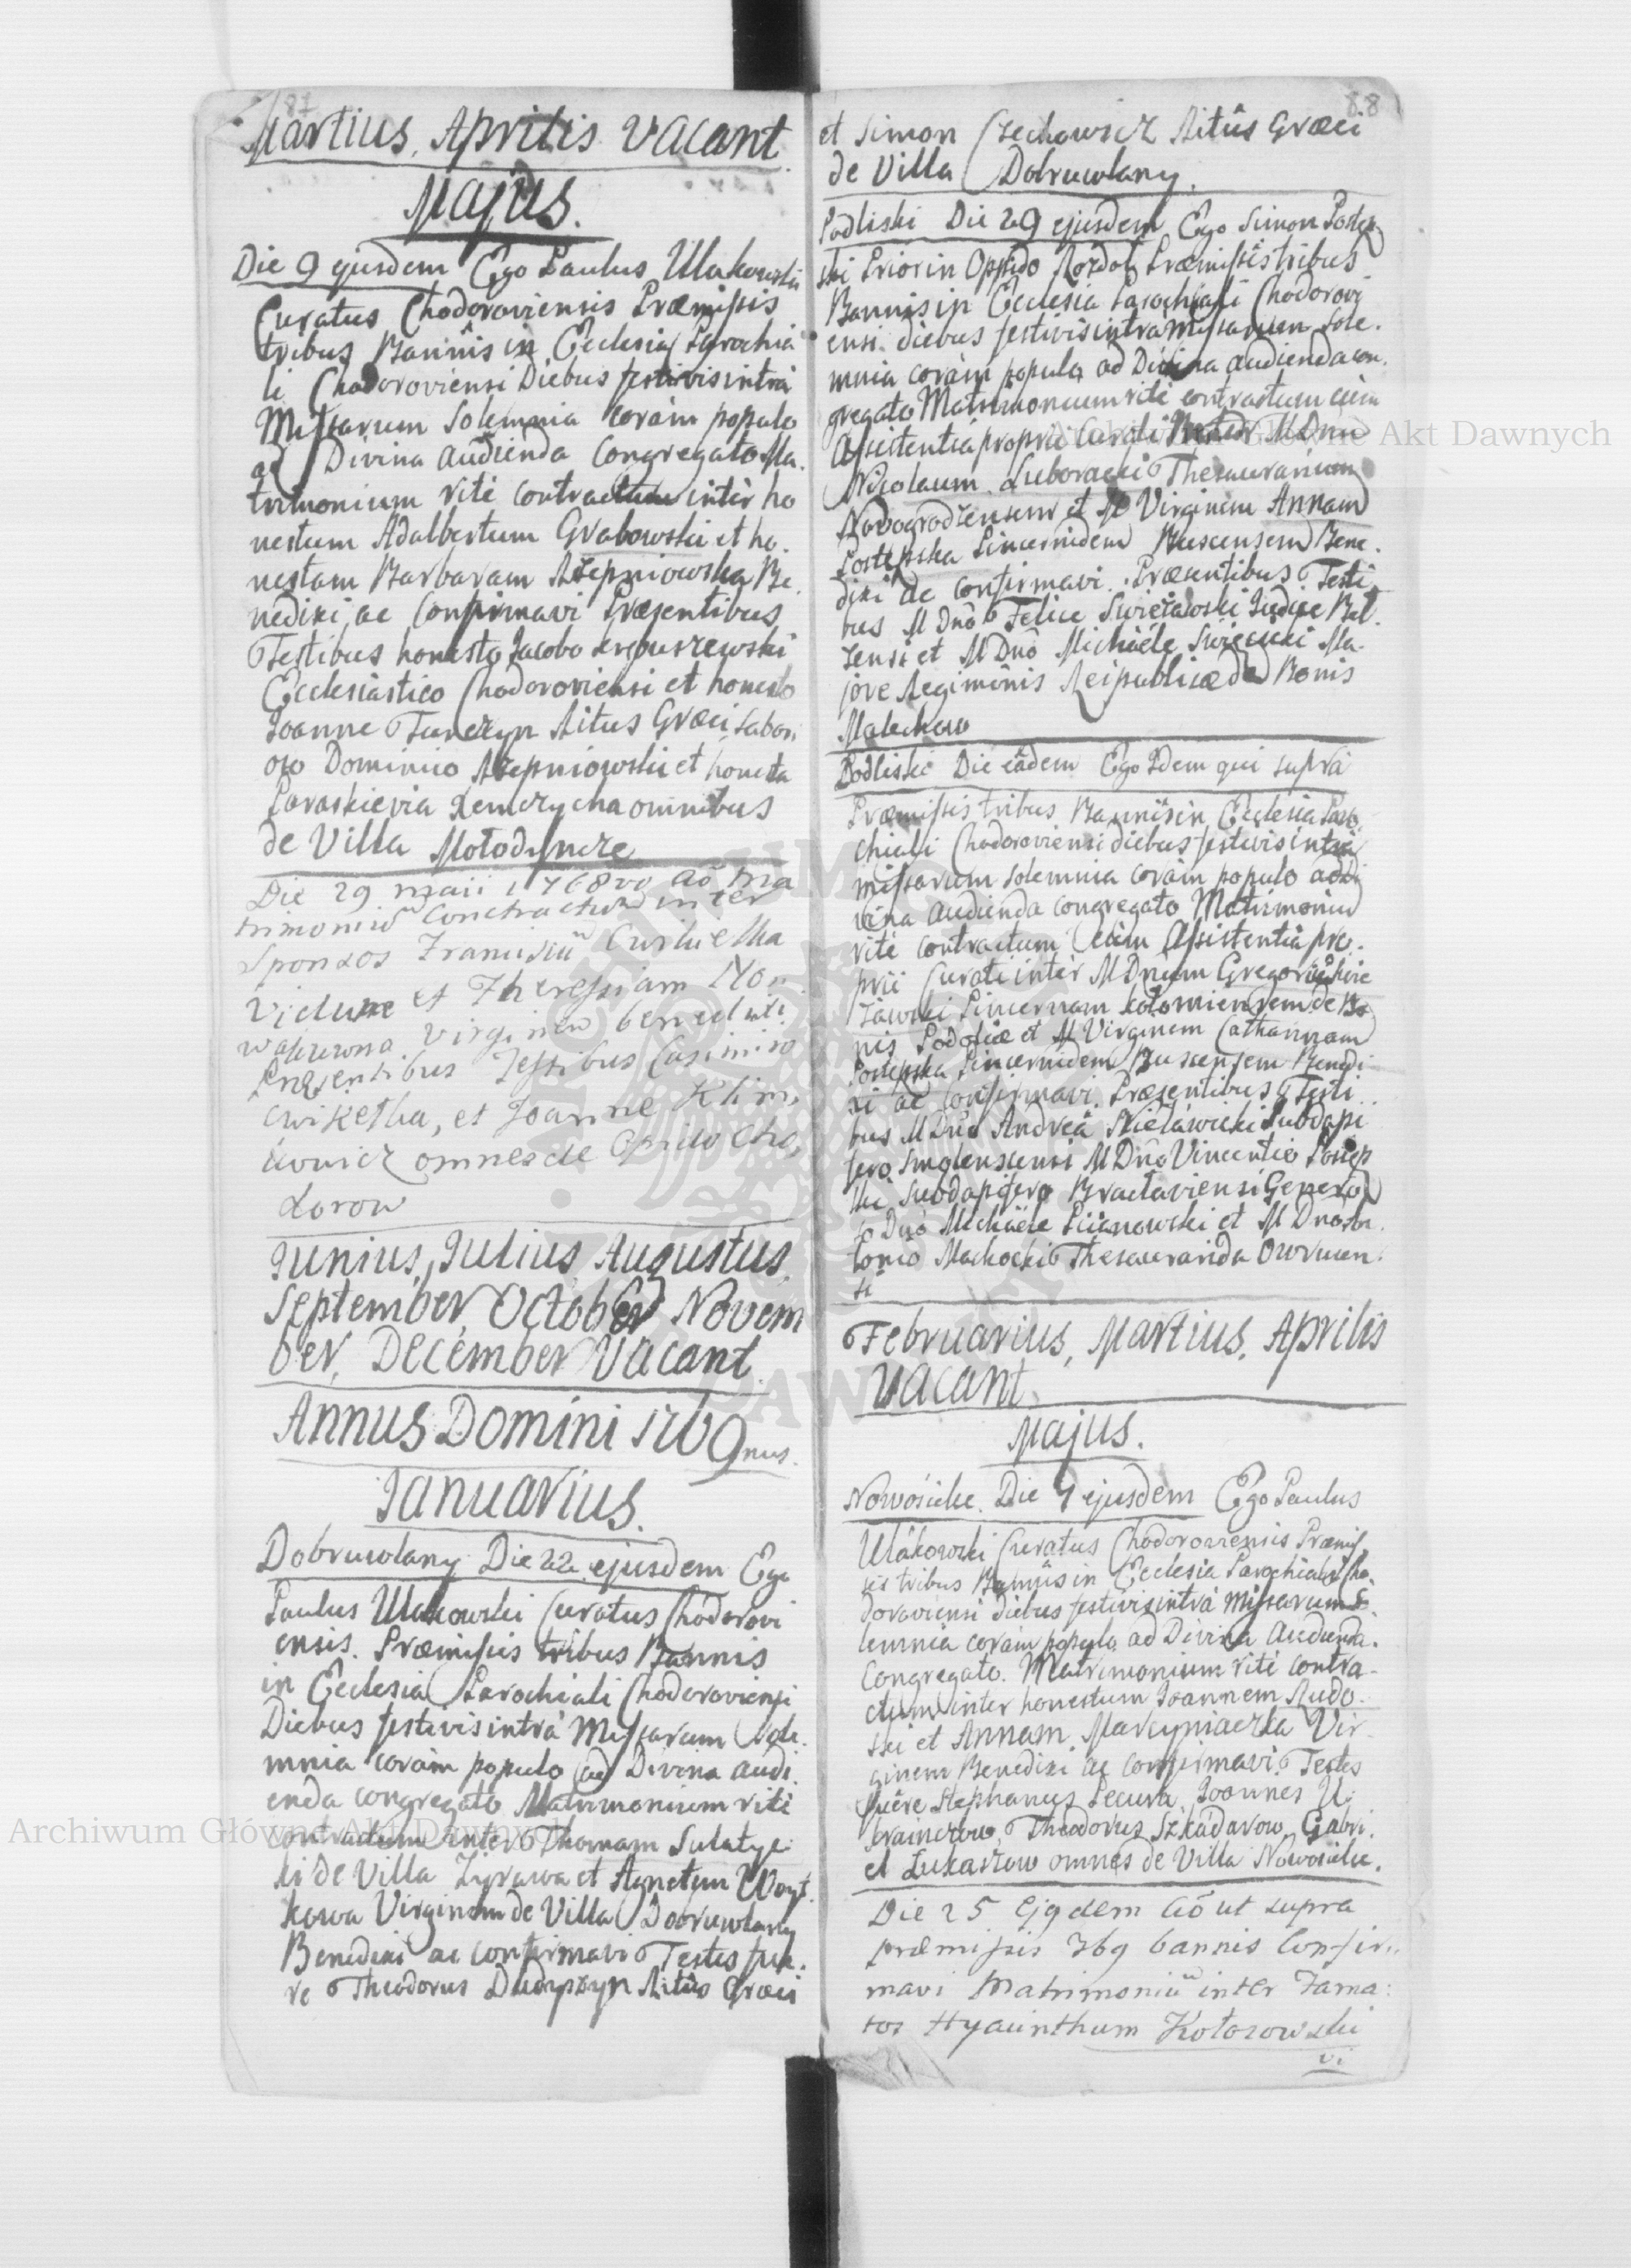 87
Martius, Aprilis vacant.
Majus.
Die 9 ejusdem Ego Paulus Ulakowski
Curatus Chodoroviensis Præmissis
tribus Bannis in Ecclesia Parochia
li Chodoroviensi Diebus festivis intrà
Missarum Solemnia coràm populo
ad Divina audienda Congregato Ma.
trimonium ritè contractum intèr ho
nestum Adalbertum Grabowski et ho.
nestam Barbaram Rzepniowska Be.
nedixi, ac Confirmavi Præsentibus
Testibus honesto Jacobo
Ecclesiastico Chodoroviensi et honesto
Joanne Ritus Græci Labori
oso Dominico Rzepniowski et honesta
Paraskievia omnibus
de Villa Mołodyncze
Die 29 maii 1768vo aõ ma
trimoniũ Contractum inter
Sponsos Franciscũ Cwikielka
Viduum et Theressiam No
wakowna Virginem benedixi
Præsentibus Testibus Casimiro
Cwikelka, et Joanne Klim
kowicz omnes de Oppido Cho,
dorow
Junius, Julius, Augustus,
September, October Novem
ber, December vacant.
Annus Domini 1769nus.
Januarius.
Dobruwlany Die 22 ejusdem Ego
Paulus Ulakowski Curatus Chodorovi
ensis. Præmissis tribus Bannis
in Ecclesia Parochiali Chodoroviensi
Diebus festivis intrà Missarum Sole.
mnia coràm populo ad Divina audi.
enda congregato Matrimonium ritè
contractum intèr Thomam Sulatyc
ki de Villa Zyrawa et Agnetem Woyt.
kowa Virginem de Villa Dobruwlany
Benedixi ac confirmavi Testes fue.
re Theodorus Ritûs Græci
88
et Simon Czechowicz Ritûs Græci
de Villa Dobruwlany.
Podliski Die 29 ejusdem Ego Simon Postęp
ski Prior in Oppido Rozdoł Præmissis tribus
Bannis in Ecclesia Parochiali Chodorovi
ensi diebus festivis intrà Missarum Sole.
mnia coràm populo ad Divina audienda con.
gregato Matrimonium ritè contractum cùm
Assistentia proprii Curati M Dnum
Nicolaum Luboracki Thesaurarium
Novogrodzensem et M Virginem Annam
Postępska Pincernidem Buscensem Bene.
dixi ac confirmavi. Præsentibus Testi
bus M Dnô Felice Judice Bel.
zensi et M Dnô Michaële Ma.
jore Regiminis Reipublicæ de Bonis
Malechow
Podliski Die eâdem Ego Idem qui suprà
Præmissis tribus Bannis in Ecclesia Paro
chiali Chodoroviensi diebus festivis intrà
missarum solemnia coràm populo ad Di
vina audienda congregato Matrimoniũ
ritè contractum cùm Assistentia pro.
prii Curati intèr M Dnum Gregorium
Pincernam Kołomiensem de Bo
nis Podolia et M Virginem Catharinam
Postępska Pincernidem Buscensem Benedi
xi ac Confirmavi. Præsentibus Testi.
bus M Dnô Andreâ Subdapi
fero Smolenscensi M Dnô Vincentio Postęp
ski Subdapifero Bracłaviensi Genero
so Dnô Michaële et M Dno An.
tonio Machocki Thesaurarida Owrucen.
si
Februarius, Martius, Aprilis
vacant.
Majus.
Nowosielce. Die 9 ejusdem Ego Paulus
Ulakowski Curatus Chodoroviensis Præmis,
sis tribus Bannis in Ecclesia Parochiali Cho.
doroviensi diebus festivis intrà Missarum So.
lemnia coràm populo ad Divina Audienda.
Congregato. Matrimonium ritè contra-
ctum inter honestum Joannem Rudo.
ski et Annam Marcyniaczka Vir
ginem Benedixi ac confirmavi. Testes
fuêre Stephanus Pecura, Joannes U.
kraincow, Theodorus Szkadarow, Gabri.
el Łukaszow omnes de Villa Nowosielce.
Die 25 Ejqdem aõ ut supra
præmissis 3bq bannis Confir..
mavi Matrimoniũ inter Fama:
tos Hyacinthum Kołosowski
vi
Archiwum Główne Akt Dawnych
Archiwum Główne Akt Dawnych